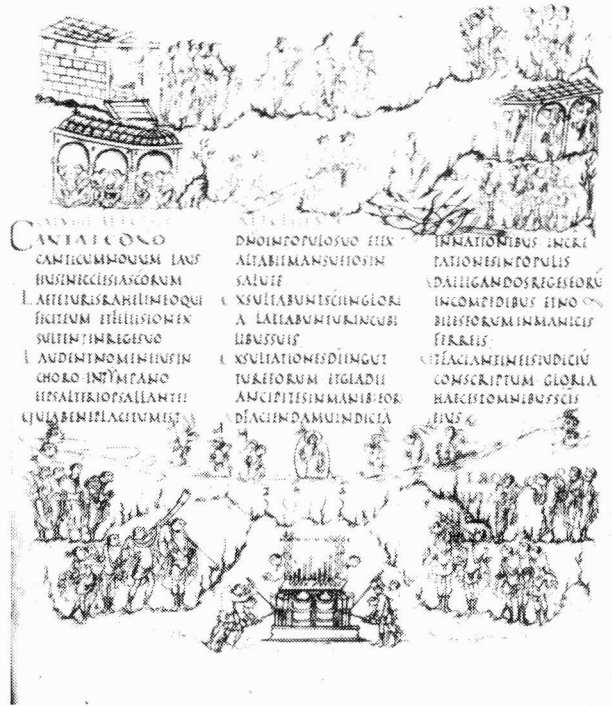 CANTATEDNO
CANTICUMNOUUM LAUS
EIUSINECCLESIASCORUM
LAETETURISRAHELINEOQUI
FECITEUM ETFILIESIONEX
SULTENTINREGESUO
LAUDENTNOMENEIUSIN
CHORO INTYMPANO
ETPSALTERIOPSALLANTEI
QUIABENEPLACITUMEST
DNOINPOPULOSUO ETEX
ALTABITMANSUETOSIN
SALUTE
EXSULTABUNTSCIINGLORI
A LAETABUNTURINCUBI
LIBUSSUIS
EXSULTATIONESDIINGUT
TUREEORUM ETGLADII
ANCIPITESINMANIB·EOR
ADFACIENDAMUINDICTA
INNATIONIBUS INCRE
PATIONESINPOPULIS
ADALLIGANDOSREGESEORU
INCOMPEDIBUS ETNO
BILESEORUMINMANICIS
FERREIS
UTFACIANTINEISIUDICIU
CONSCRIPTUM GLORIA
HAECESTOMNIBUSSCIS
EIUS